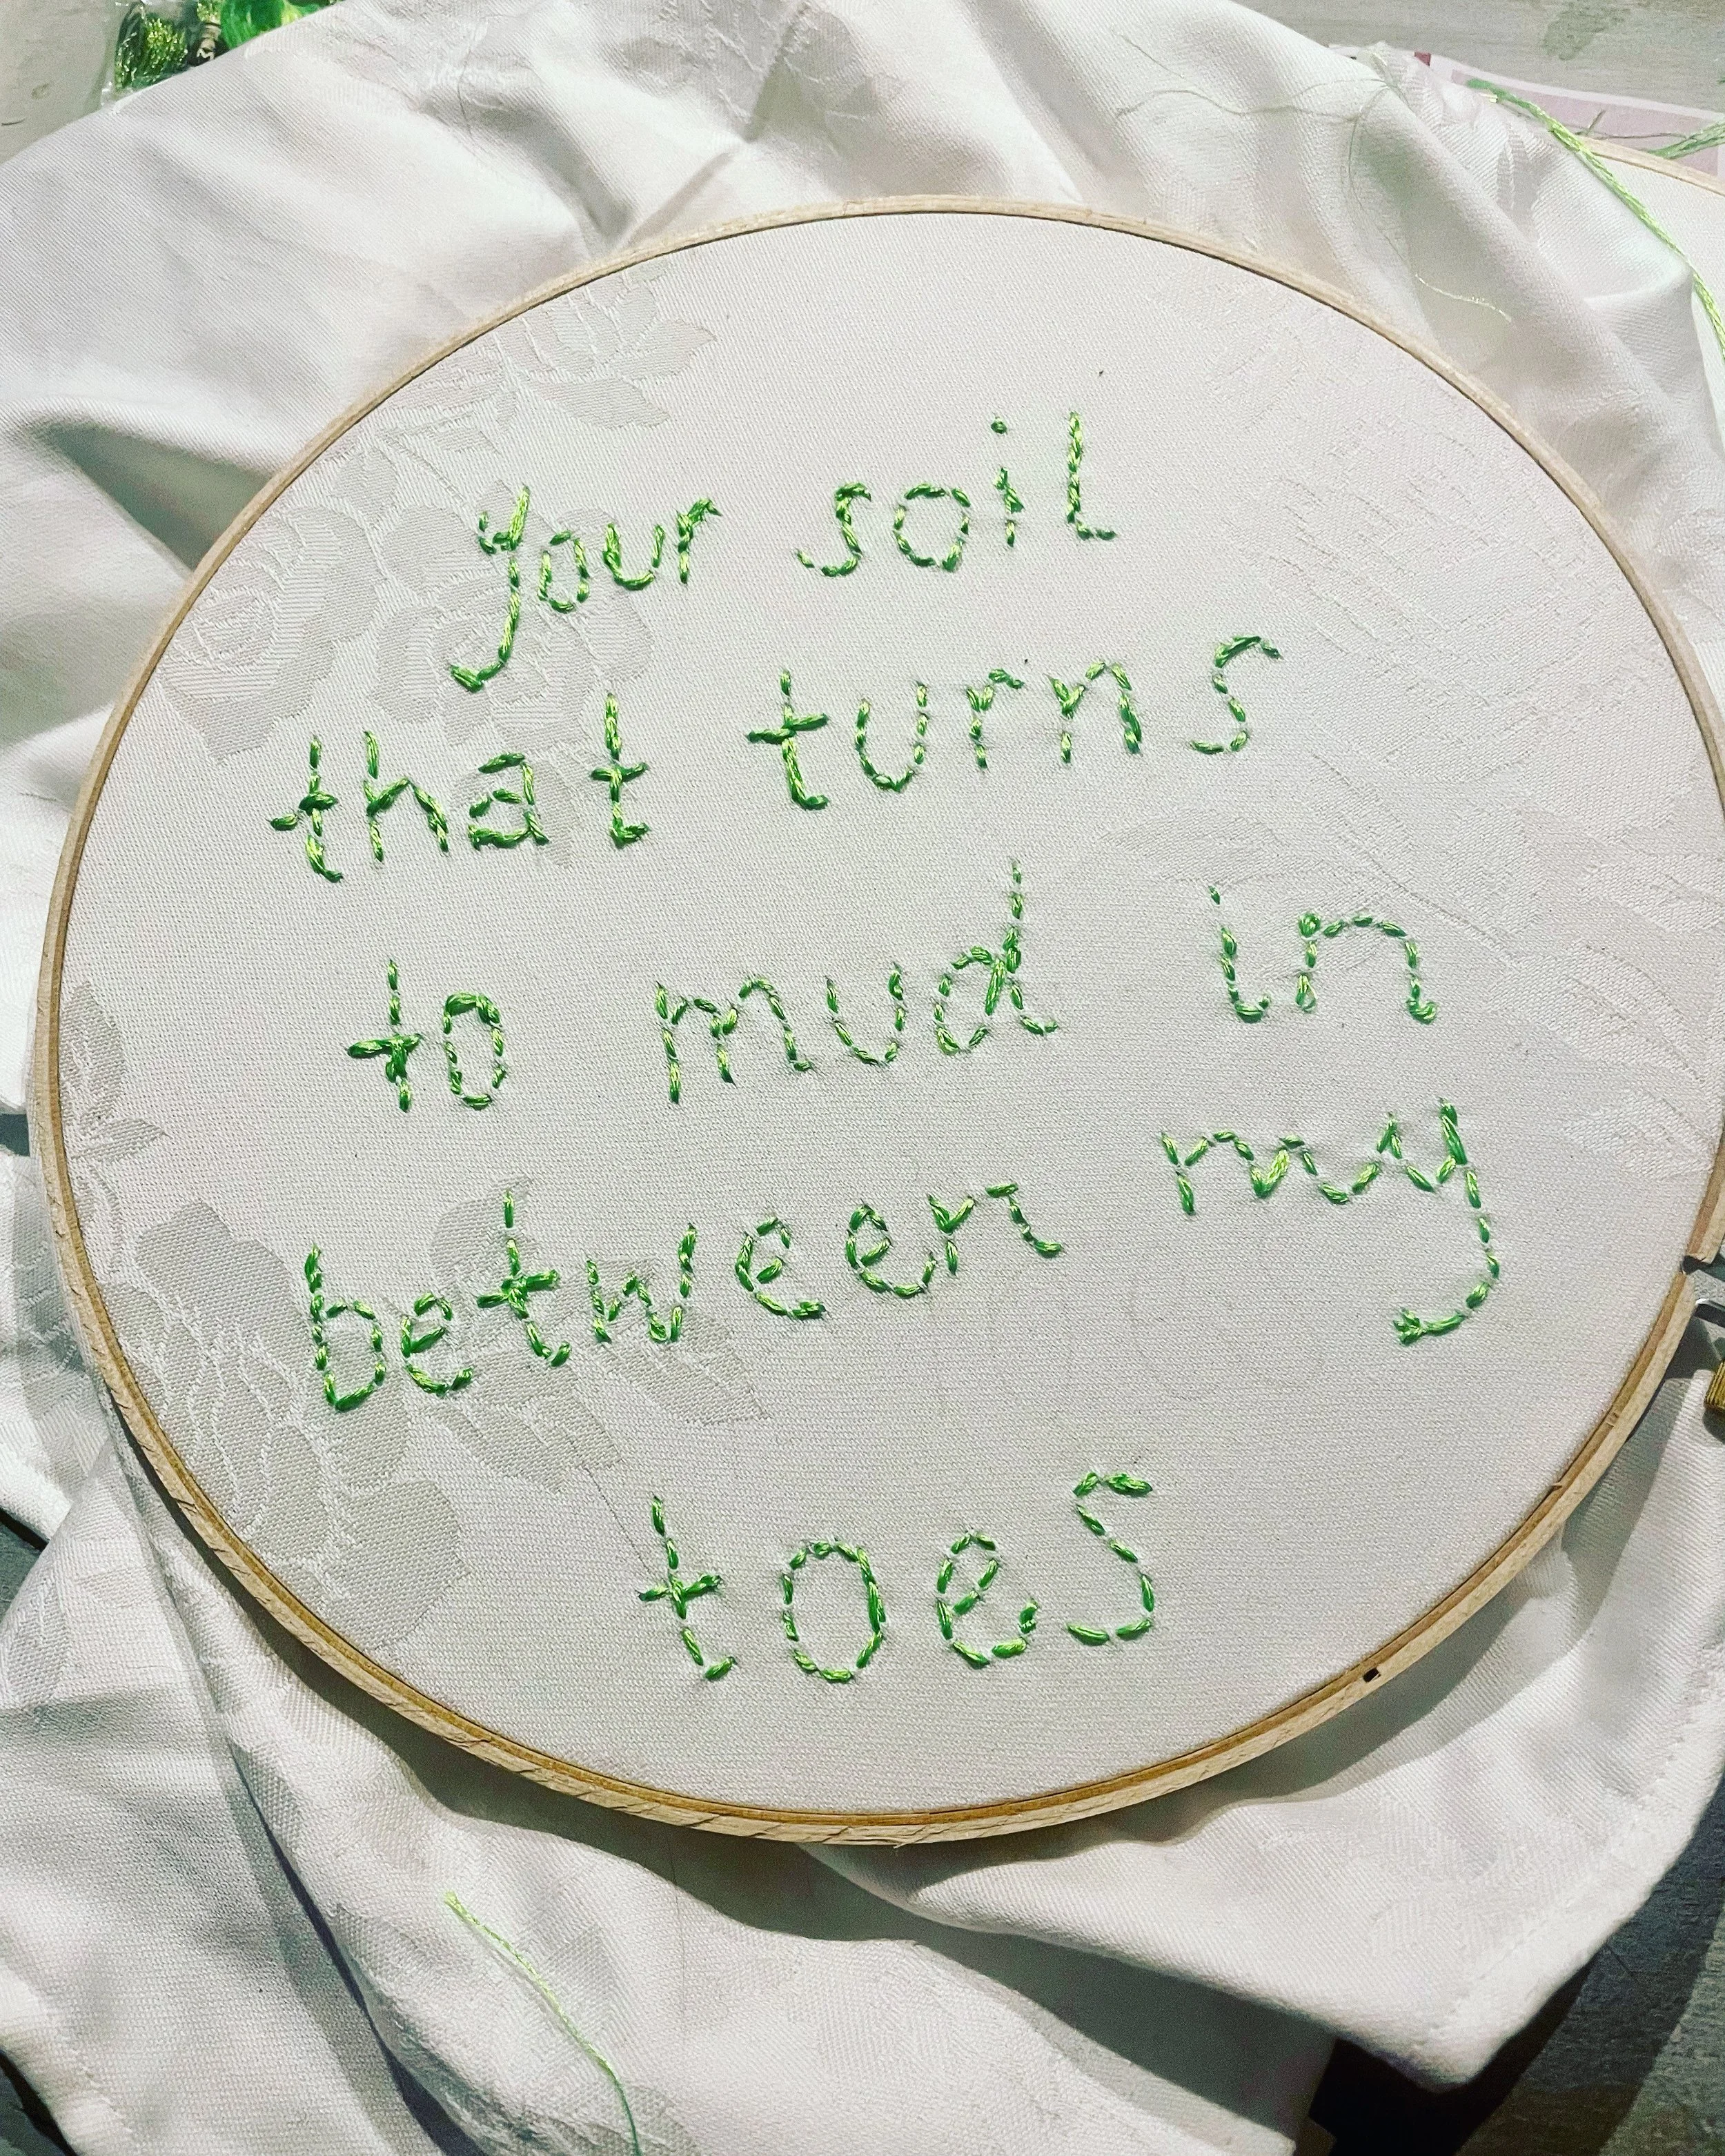 your soil
that turns
to mud in
between my
toes